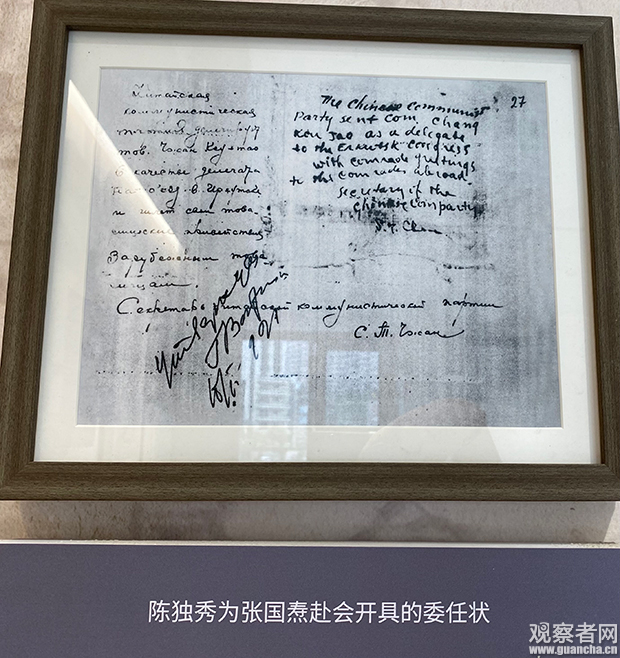 Китайская
коммунистическая
партия
тов. Чжан
в качестве делегата
на съезд в Иркутск
и шлет свои това-
рищеские приветствия
Зарубежным това-
рищам.
Секретарь китайской коммунистической партии
С. Т. Чжан
27
The Chinese Communist
Party sent com. Chang
Ken Tao as a delegate
to the Congress
with comrade greetings
to the comrades abroad.
Secretary of the
Chinese Com party
Chen
陈独秀为张国焘赴会开具的委任状
观察者网
www.guancha.cn